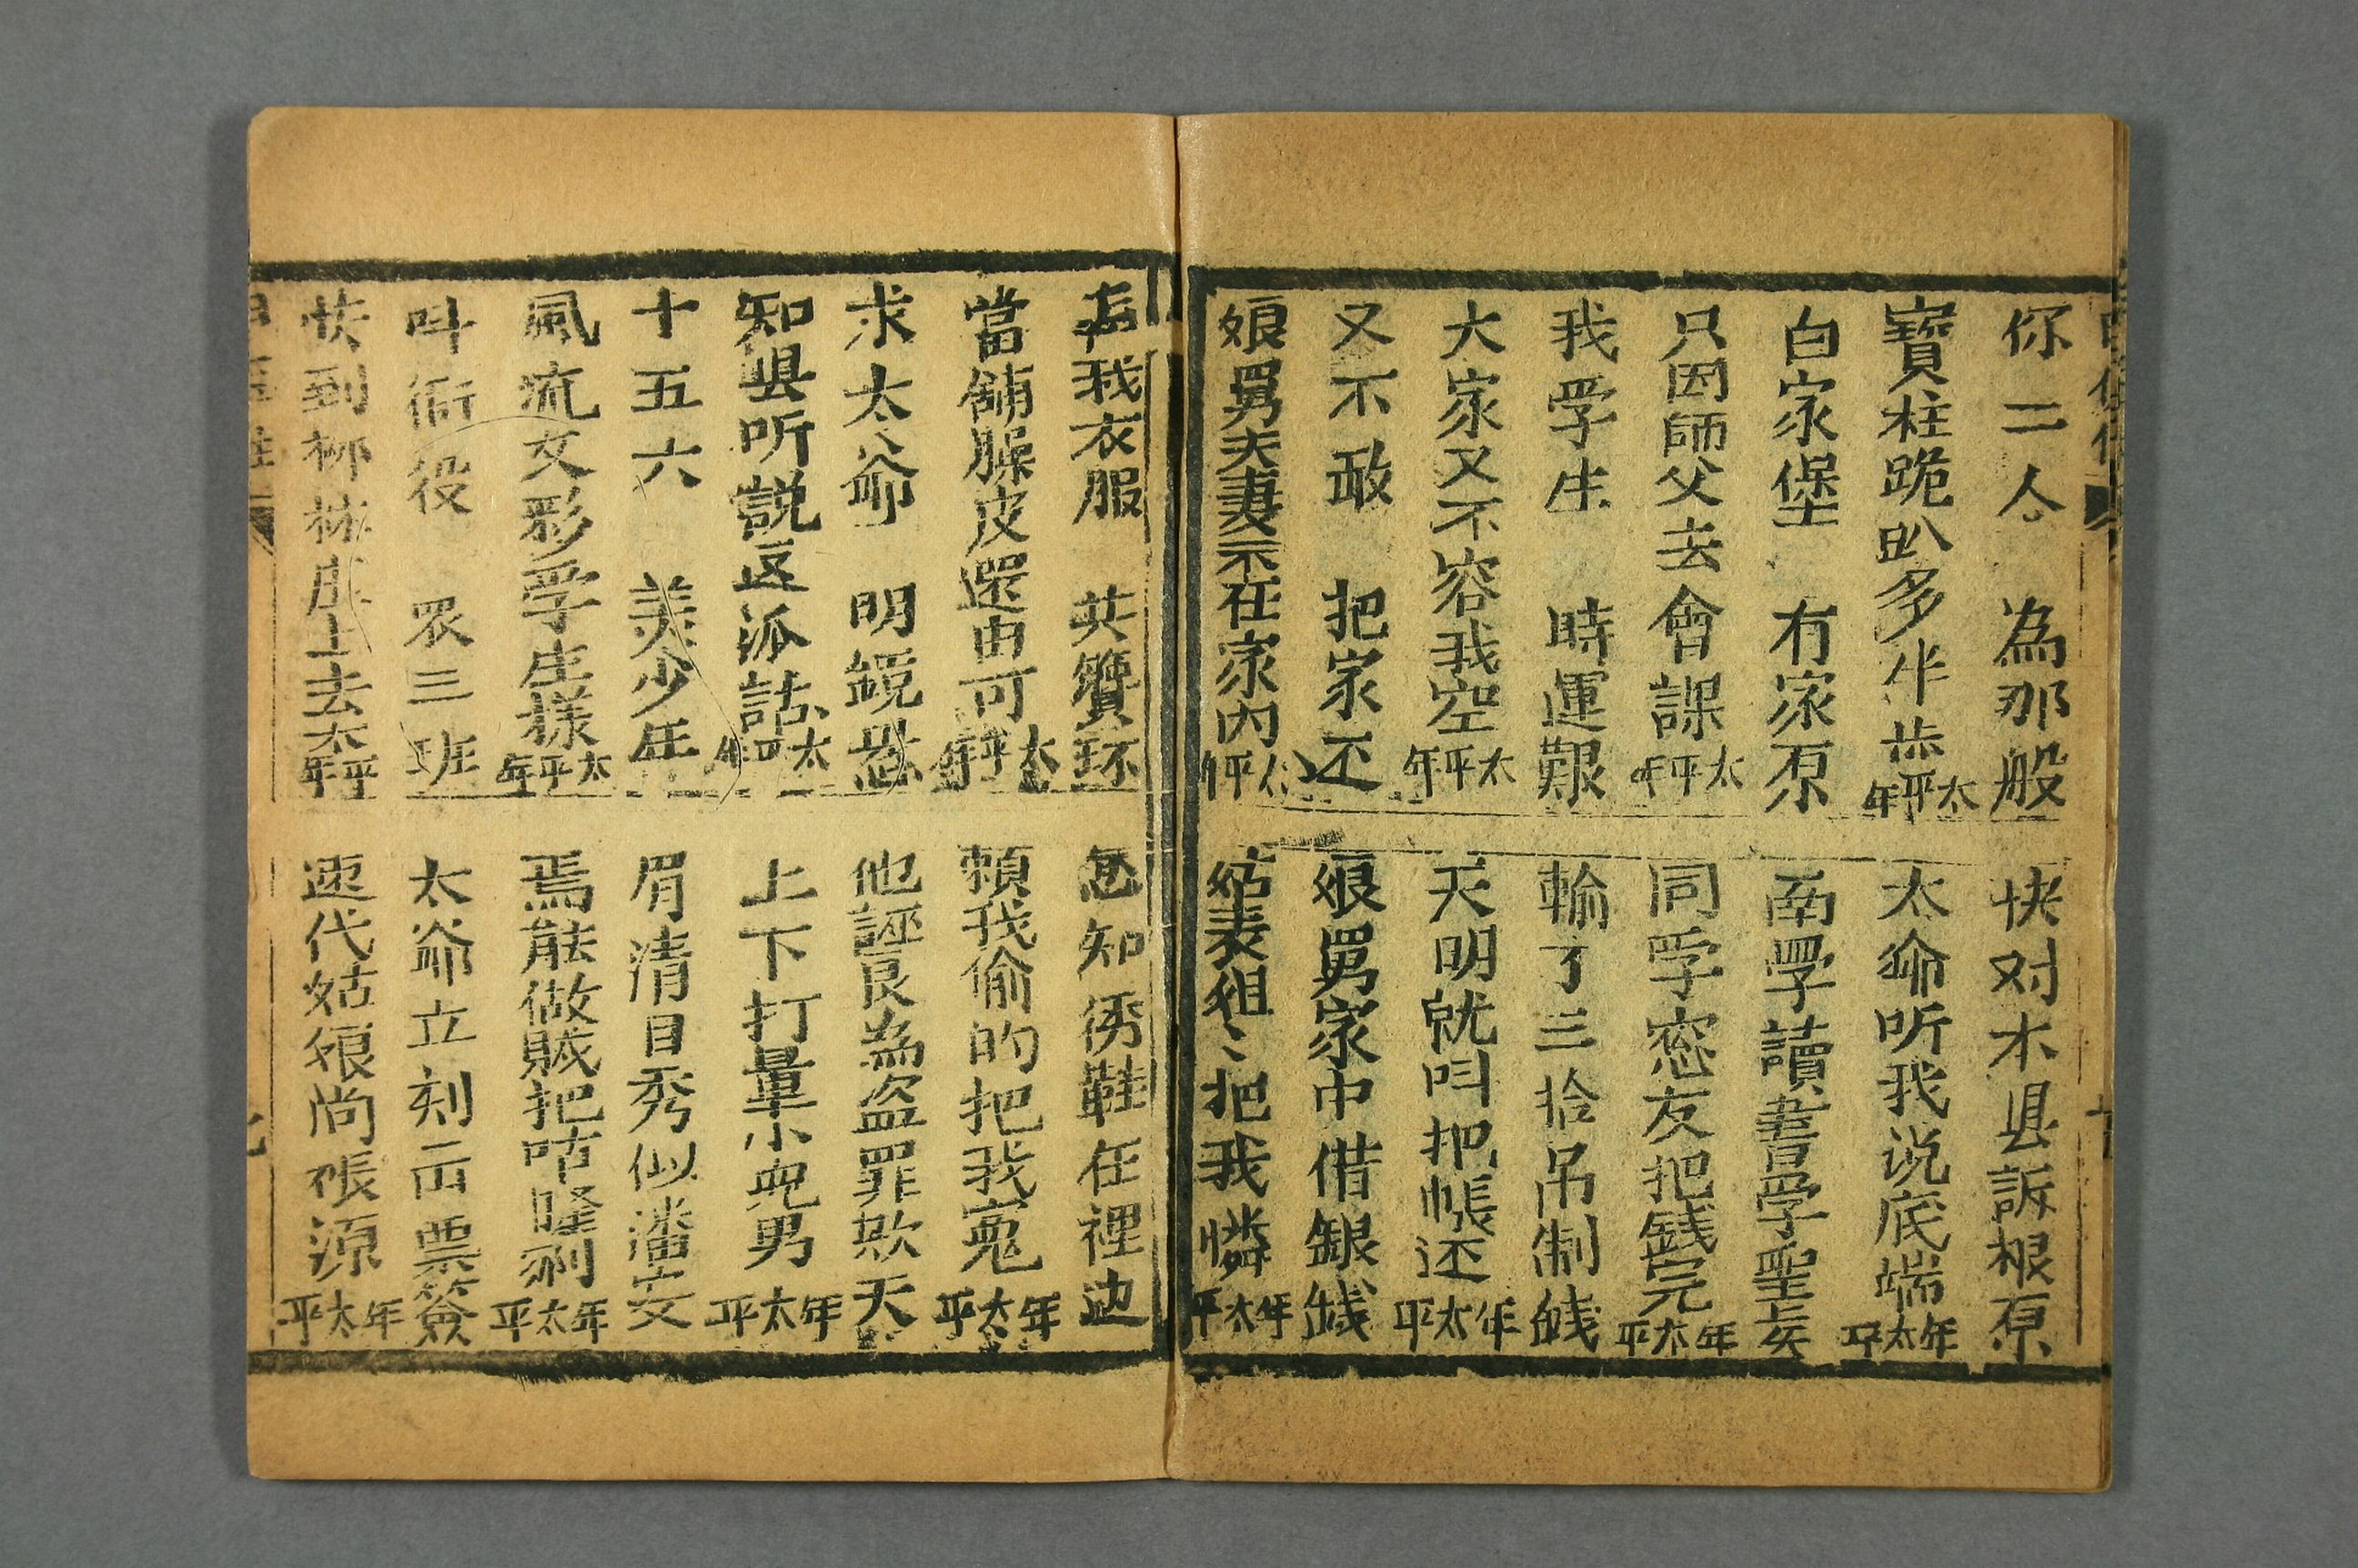 你二人 為那般 快对本县訴根原
寳柱跪趴多半步太平年 太爷听我说底端年太平
白家堡 有家原 南學讀書学聖贤
只因師父去會課太平年 同学窓友把錢完年太平
我学生 時運艱 輸了三拾吊制戋
大家又不容我空太平年 天明就叫把帳还年太平
又不敢 把家还 娘舅家中借銀戋
娘舅夫妻不在家内太平年 姑表姐〻把我憐年太平
怎我衣服 共簪环 忽知綉鞋在裡边
當舖臊皮还由可太平年 頼我偷的把我寃年太平
求太爷 明鏡悬 他誣良為盗罪欺天
知县听説这派話太平年 上下打量小児男年太平
十五六 美少年 眉清目秀似潘安
風流文彩学生様太平年 焉能做賊把咕隆剜年太平
叫衙役 众三班 太爷立刻出票簽
快到柳林庄上去太平年 速代姑娘尚張源年太平